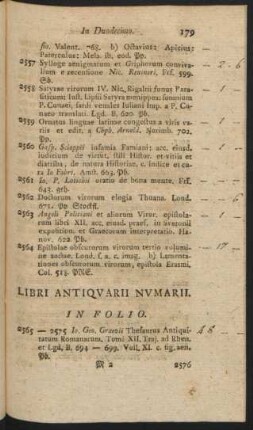 In Duodecimo. 179
flo. Valent. 768. b) Octavius; Apicius;
Paterculus; Mela. ib. eod. Pp.
2557 Sylloge ænigmatum et Griphorum conviva-
lium e recensione Nic. Reusneri. Frf. 599.
Sb. - 2 - 6
2558 Satyræ virorum IV. Nic. Rigaltii funus Para-
siticum; Iust. Lipsii Satyra menippea; somnium
P. Cunæi, sardi venales Iuliani Imp. a P. Cu-
næo translati. Lgd. B. 620 Pb. 1
2559 Ornatus linguae latinae congestus a viris va-
riis et edit. a Chph. Arnold. Norimb. 702.
Pp.
2560 Gasp. Scioppii infamia Famiani: acc. eiusd.
iudicium de virtut. stili Histor. et vitiis et
diatriba, de natura Historiae, c. Indice et cu-
ra Io Fabri. Amst. 663. Pb.
2561 Io. P. Lotichii oratio de bona mente. Frf.
643. orb.
2562 Doctorum virorum elogia Thuana. Lond.
671. Pp 6
2563 Angeli Politiani et aliorum Viror. epistola-
rum libri XII. acc. eiusd. praef. in Suetonii
expositionem et Graecorum interpretatio. Ha-
nov. 622 Pb. 1
2564 Epistolae obscurorum virorum tertio volumi-
ne auctae. Lond. s. a. c. imag. b) Lamenta-
tiones obscurorum virorum, epistola Erasmi.
Col. 518. PNE. - 17 -
LIBRI ANTIQVARII NVMARII.
IN FOLIO.
2565 — 2575 Io. Geo. Graevii Thesaurus Antiqui-
tatum Romanarum. Tomi XII. Traj. ad Rhen.
et Lgd. B. 694 — 699. Voll. XI. c. fig. aen.
Pb.
M 2 2576